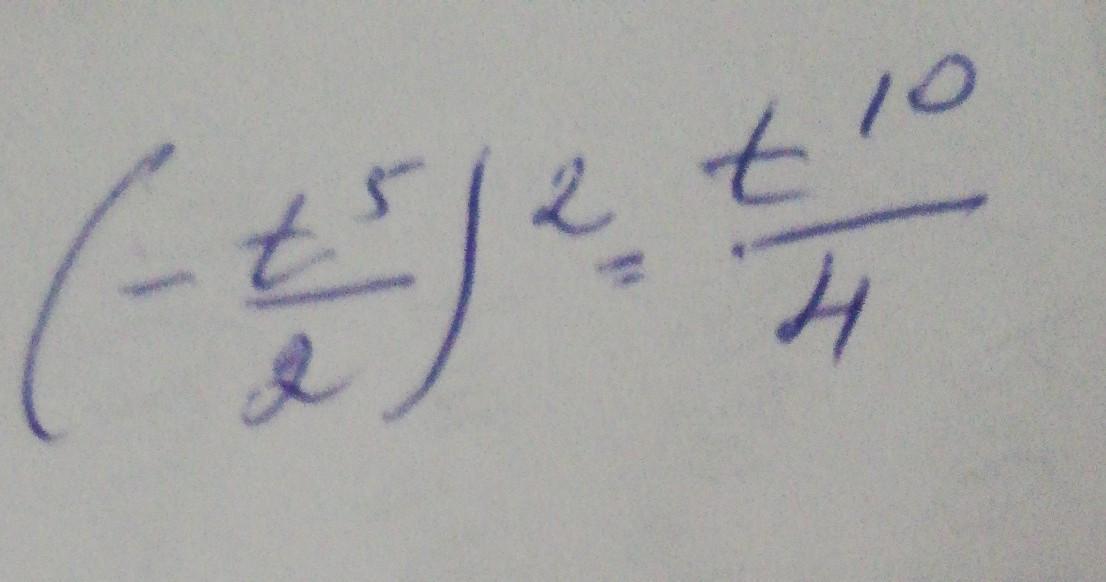 (-\frac{t^5}{2})^2 = \frac{t^{10}}{4}